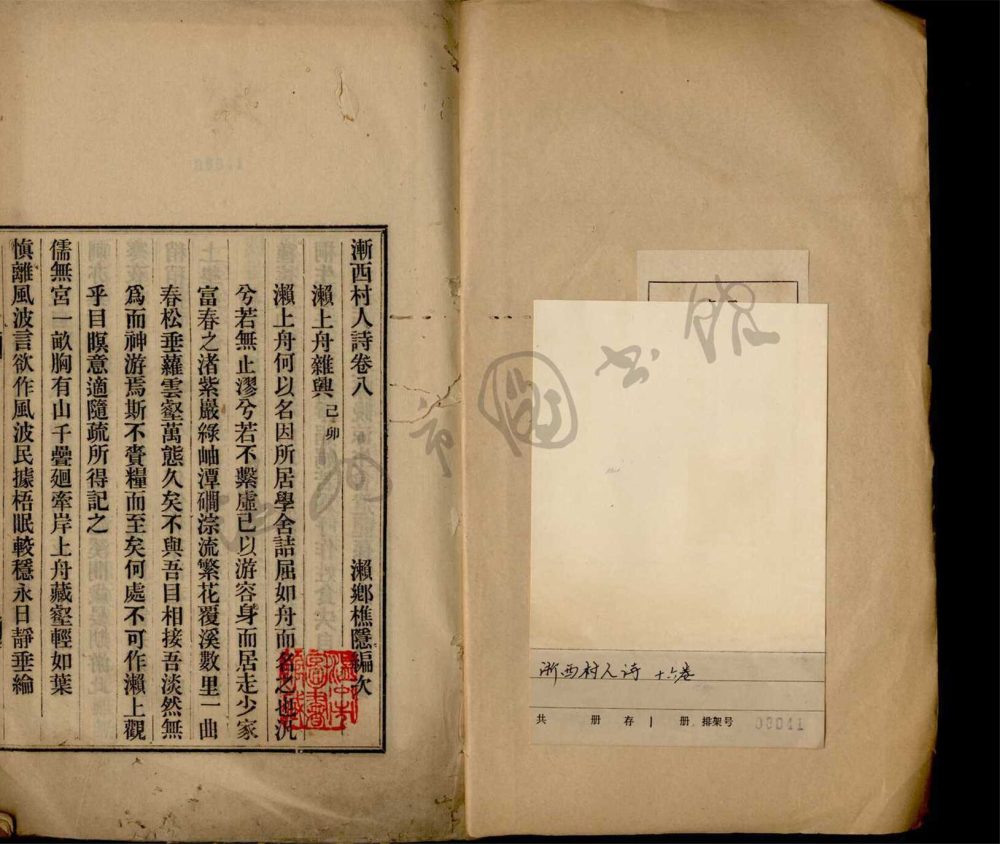 漸西村人詩卷八
瀨鄉樵隱編次
瀨上舟雜興己卯
瀨上舟何以名因所居學舍詰屈如舟而名之也汎
兮若無止漻兮若不繫虛己以游容身而居走少家
富春之渚紫巖綠岫潭磵淙流繁花覆溪數里一曲
春松垂蘿雲壑萬態久矣不與吾目相接吾淡然無
為而神游焉斯不賫糧而至矣何處不可作瀨上觀
乎目瞑意適隨疏所得記之
儒無宮一畝胸有山千疊廻牽岸上舟藏壑輕如葉
慎離風波言欲作風波民據梧眠較穩永日靜垂綸
浙西村人诗 十六卷
共 册 存 1 册 排架号
市 圖 书 館